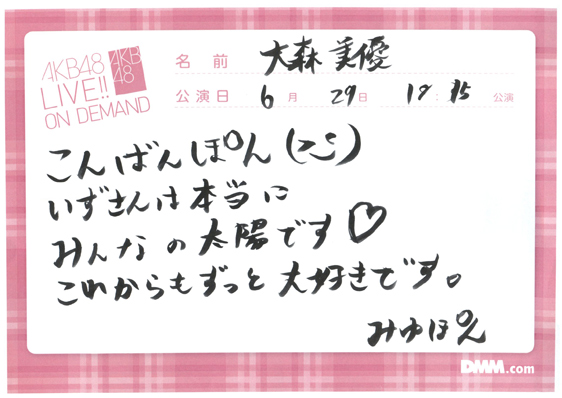 AKB48
LIVE!!
ON DEMAND
AKB
48
名前 大森美優
公演日 6月 29日 18:15 公演
こんばんぽん(こじ)
いずさんは本当に
みんなの太陽です♡
これからもずっと大好きです。
みゆぽん
DMM.com